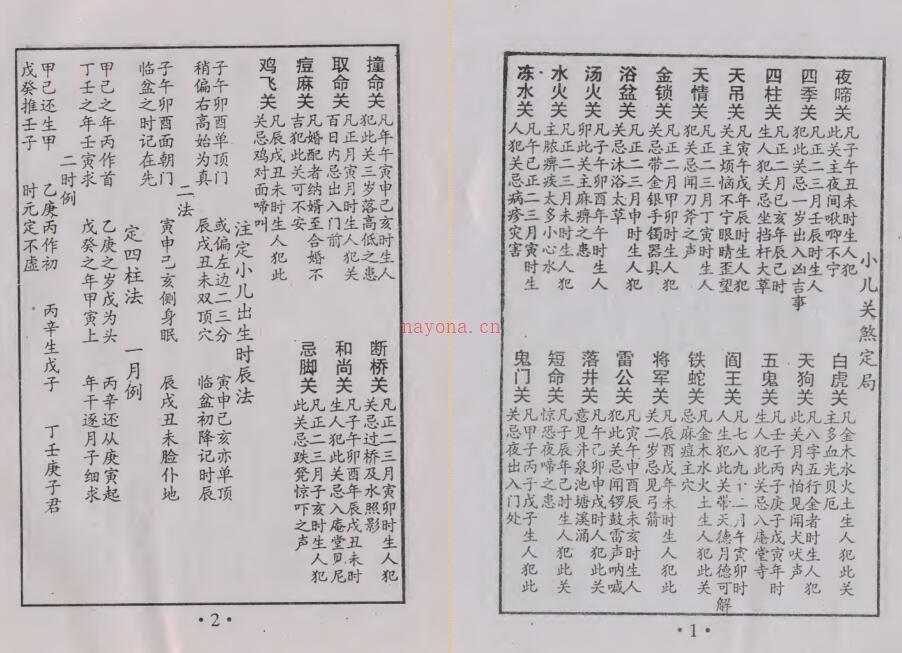 小儿关煞定局
夜啼关
凡子午丑未时生人犯
此关主夜间啾唧不宁
四季关
凡正二三月壬辰时生人
犯此关忌一岁出入凶吉事
四柱关
凡正二月己亥年辰巳时
生人犯关忌坐挡杆大草
天吊关
凡寅午戌年辰生人犯
关主烦恼不宁眼睛歪望
天情关
凡正二三月丁寅时生人
犯关忌闻刀斧之声
金锁关
凡正二月甲卯生人犯
关忌带金银手镯器具
浴盆关
凡正二三月申时生人犯
关忌沐浴太草
汤火关
凡子午卯酉年午时生人
卯此关主麻痹之患
水火关
凡正二三月未时生人犯
主脓痹疾太多小心水
冻水关
凡午巳正二三月寅时生
人犯关忌病疹灾害
白虎关
凡金木水火土生人犯此关
主多血光贝厄
天狗关
凡八字五行金者时生人犯
此关月内怕见闻犬吠声
五鬼关
凡壬子丙子庚子戊寅年时
生人犯此关忌入庵堂寺
阎王关
凡七八九十二月午寅卯时
人生犯此关带天德月德可解
铁蛇关
凡金木水火土生人犯此关
忌麻痘主穴
将军关
凡酉戌辰年未时生人犯此
关二岁忌见弓箭
雷公关
凡寅午申酉辰未亥时生人
犯此关忌闻锣鼓雷声呐喊
落井关
凡午己卯申戌时人犯此关
意见井泉池塘溪涌
短命关
凡子辰年己时生人犯此关
惊恐夜啼之患
鬼门关
凡甲子丙子戊子生人犯此
关忌夜出入门处
·1·
撞命关
凡年午寅申己亥时生人
犯此关三岁落高低之患
取命关
凡正月寅月时生人犯关
百日内忌出入门前
痘麻关
凡婚配者纳婿至合婚不
吉犯此关可不安
鸡飞关
凡辰戌丑未时生人犯此
关忌鸡对面啼叫
断桥关
凡正二三月寅卯时生人犯
关忌过桥及水照影
和尚关
凡子午卯酉年辰戌丑未时
生人犯此关忌入庵堂见尼
忌脚关
凡正二三月子亥时生人犯
此关忌跌凳惊吓之声
注定小儿出生时辰法
子午卯酉单顶门
或偏左边二三分
寅申己亥亦单顶
稍偏右高始为真
辰戌丑未双顶穴
临盆初降记时辰
二法
子午卯酉面朝门
寅申己亥侧身眠
辰戌丑未脸仆地
临盆之时记在先
定四柱法
一月例
甲己之年丙作首
乙庚之岁戊为头
丙辛还从庚寅起
丁壬之年壬寅求
戊癸之年甲寅上
年干逐月子细求
二时例
甲己还生甲
乙庚丙作初
丙辛生戊子
丁壬庚子君
戊癸推壬子
时元定不虚
·2·
nayona.cn